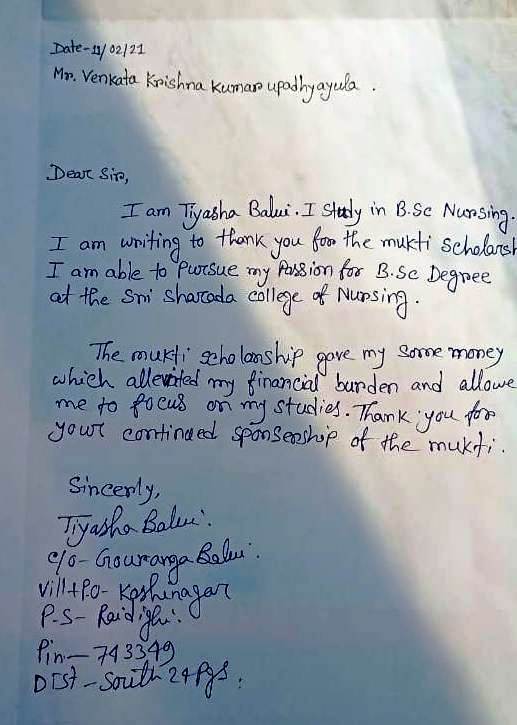 Date-11/02/21
Mr. Venkata Krishna Kumar upadhyayula.
Dear Sir,
I am Tiyasha Balui. I Study in B.Sc Nursing.
I am writing to thank you for the mukti Scholarsh
I am able to Pursue my Passion for B.Sc Degree
at the Sri Sharada college of Nursing.
The mukti scholarship gave my some money
which alleviated my financial burden and allowe
me to focus on my studies. Thank you for
your continued sponsership of the mukti.
Sincerly,
Tiyasha Balui.
c/o- Gouranga Balui.
Vill+P.O- Kashinagar
P.S- Raidighi.
Pin- 743349
DIst - South 24 Pgs.